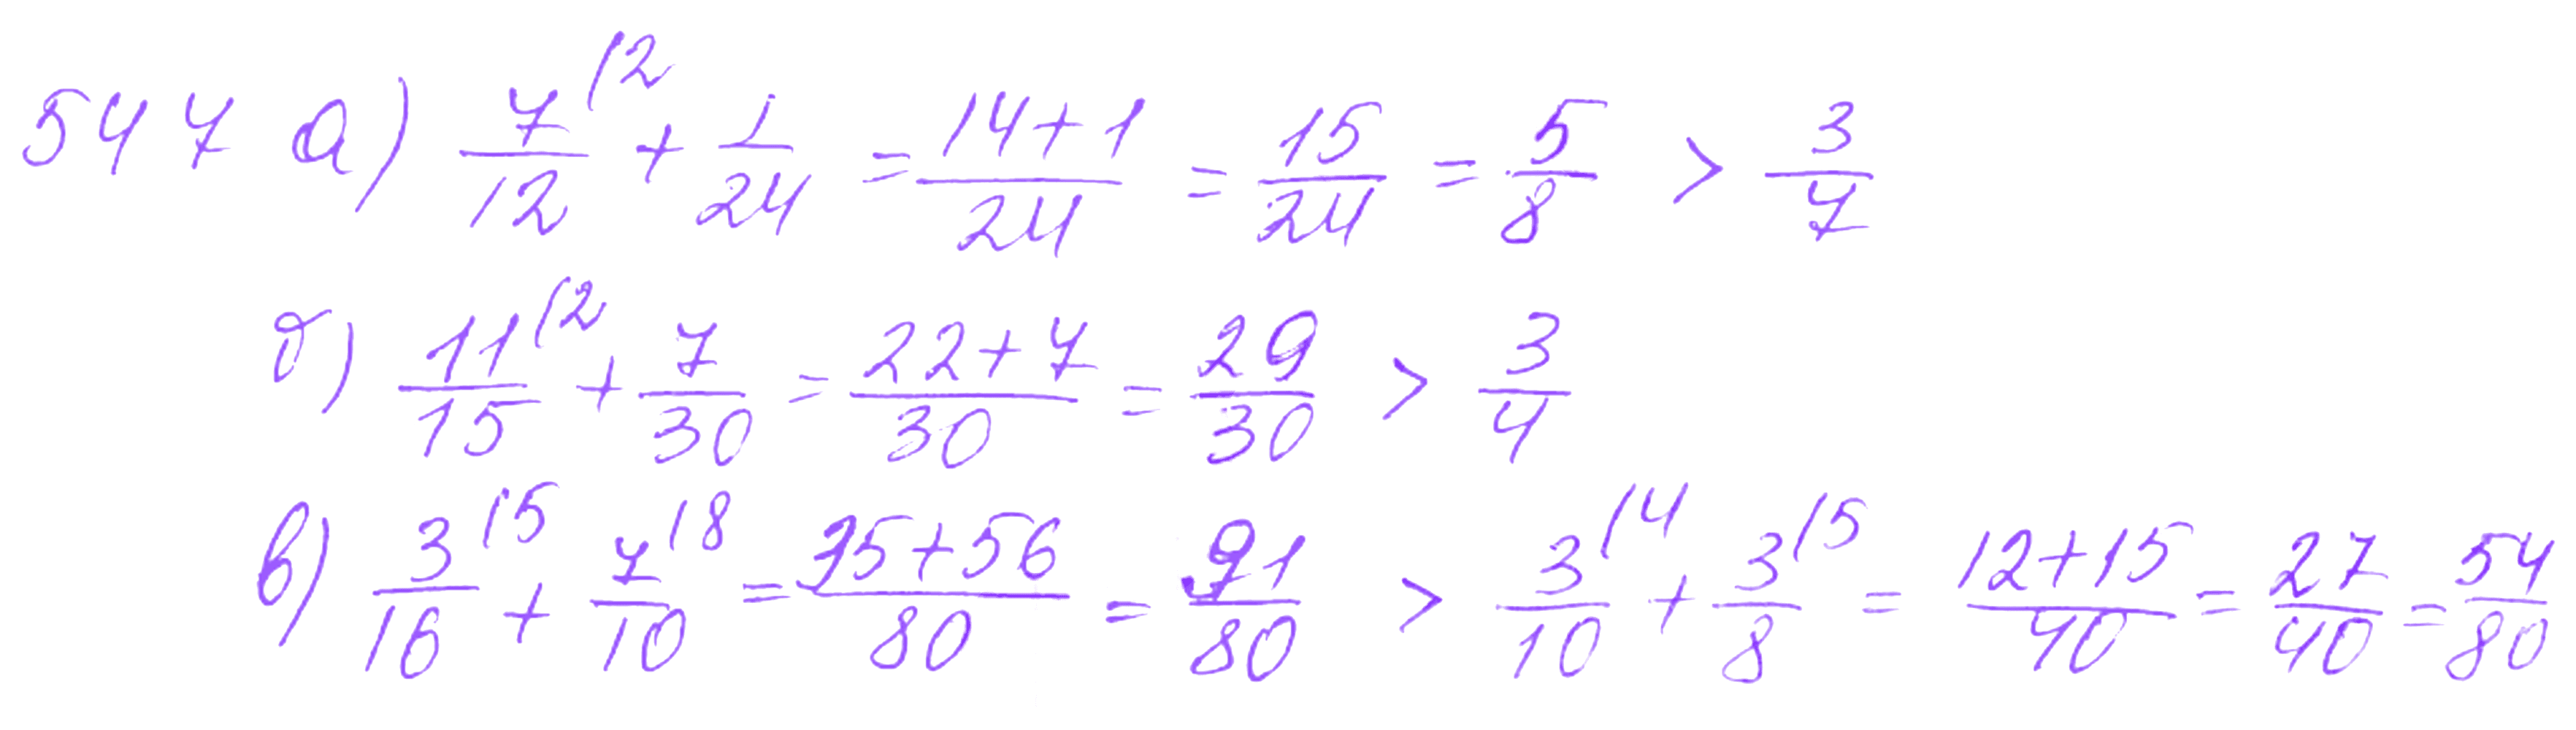 547 а) 7/12 (2 + 1/24 = 14+1/24 = 15/24 = 5/8 > 3/7
б) 11/15 (2 + 7/30 = 22+7/30 = 29/30 > 3/4
в) 3/16 (5 + 7/10 (8 = 35+56/80 = 91/80 > 3/10 (4 + 3/8 (5 = 12+15/40 = 27/40 = 54/80